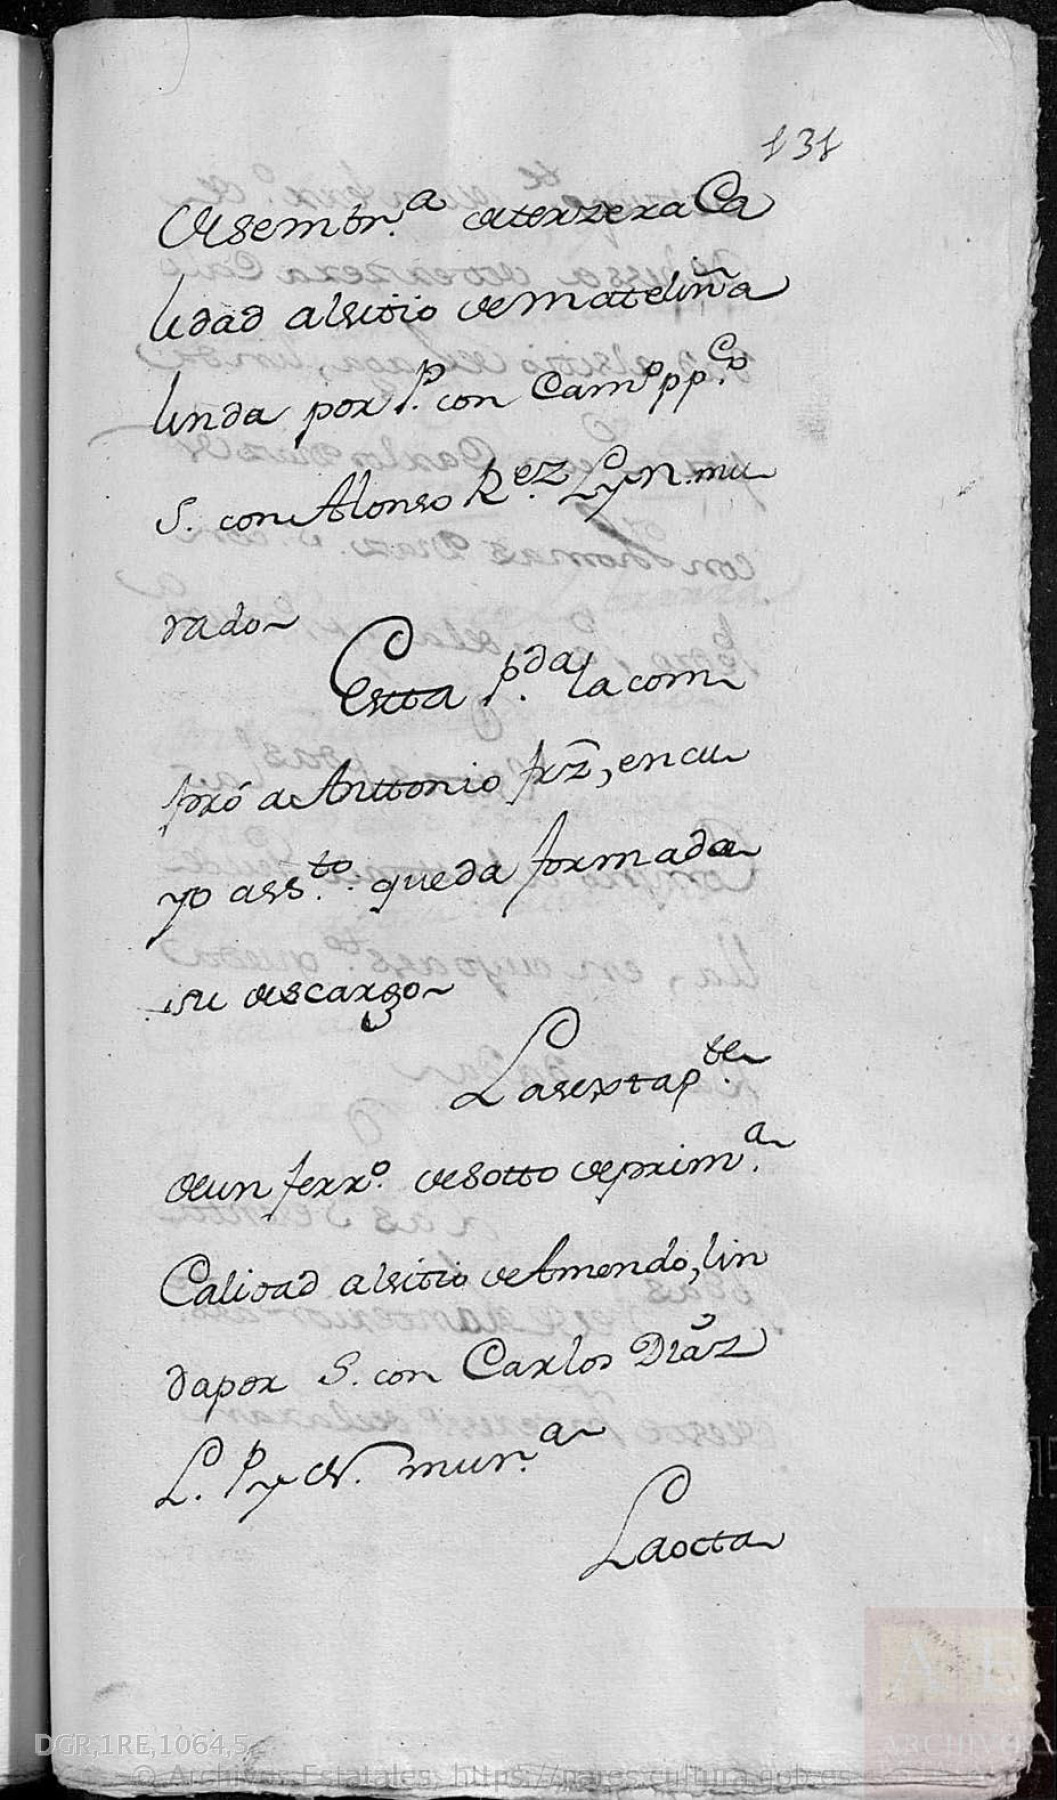 131
de sembr.ª de terzera Ca
lidad al sitio de mateliña
linda por P. con Cam.º pp.co
S. con Alonso R.ez L y N. mu
rado~
Estta p.da la com
pró a Anttonio frz, en cu
yo ass.to queda formada
su descargo~
La sexta p.te
de un ferr.º de sotto de prim.ª
Calidad al sitio de Amendo, lin
da por S. con Carlos Diaz
L. P y N. mur.ª
La octa
DGR,1RE,1064,5
© Archivos Estatales, https://pares.cultura.gob.es
AE
ARCHIVO